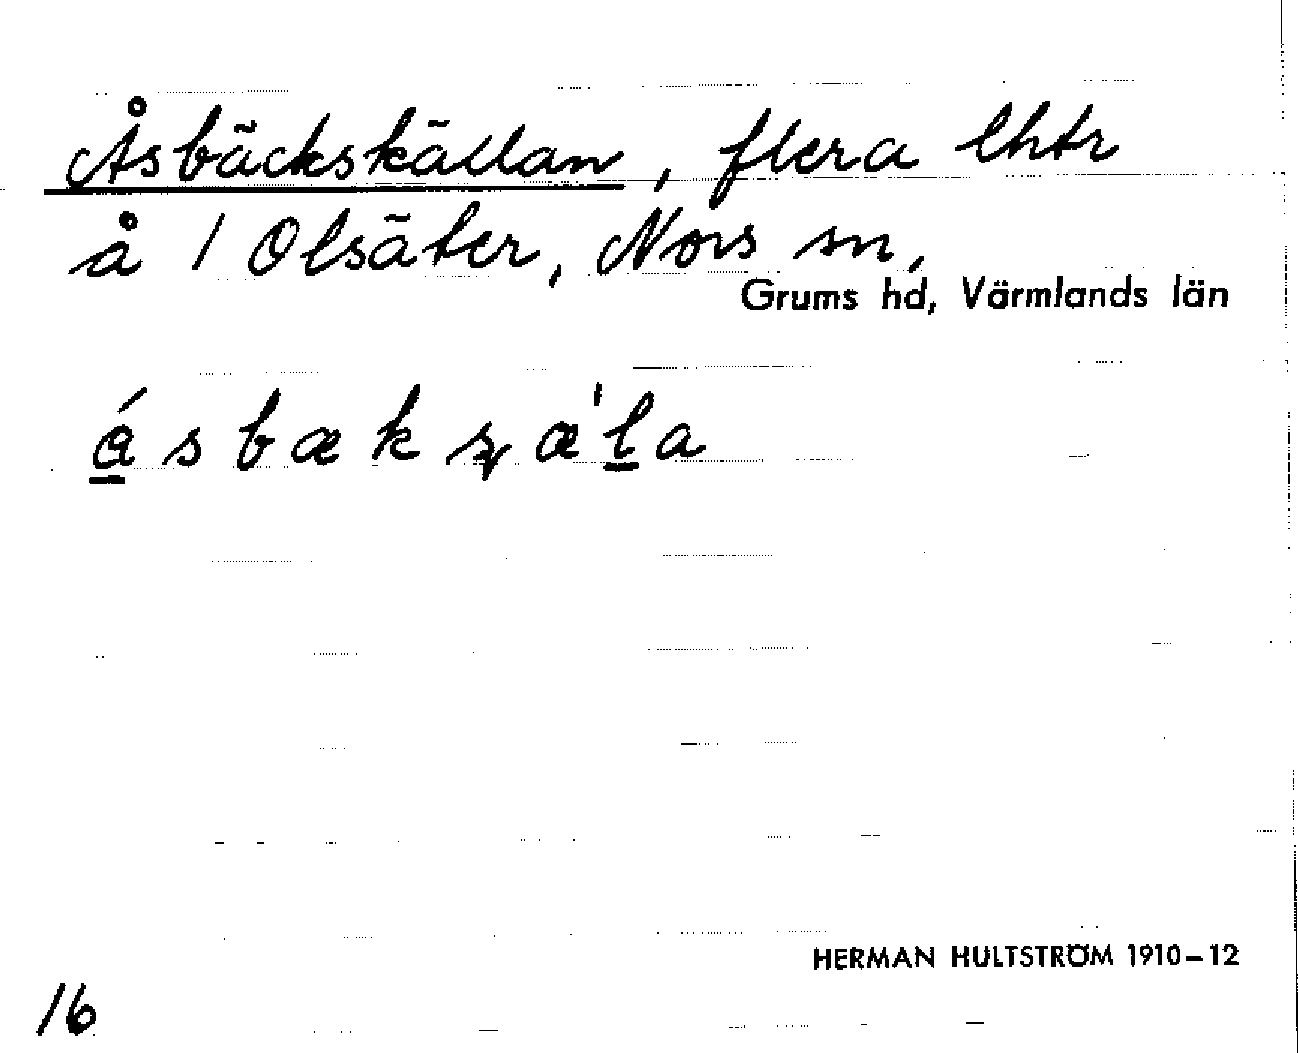 Åsbäckskällan, flera lhtr
å 1 Olsäter, Nors sn,
Grums hd, Värmlands län
HERMAN HULTSTRÖM 1910–12
16